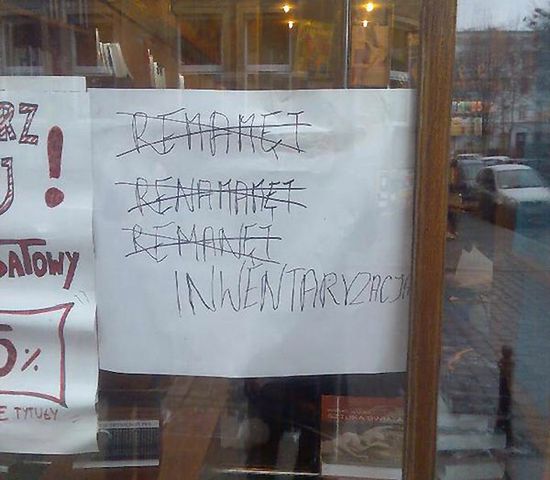 RZ
J!
BATOWY
5%
E TYTUŁY
REMAMĘT
RENAMAMĘT
REMANĘT
INWENTARYZACJA